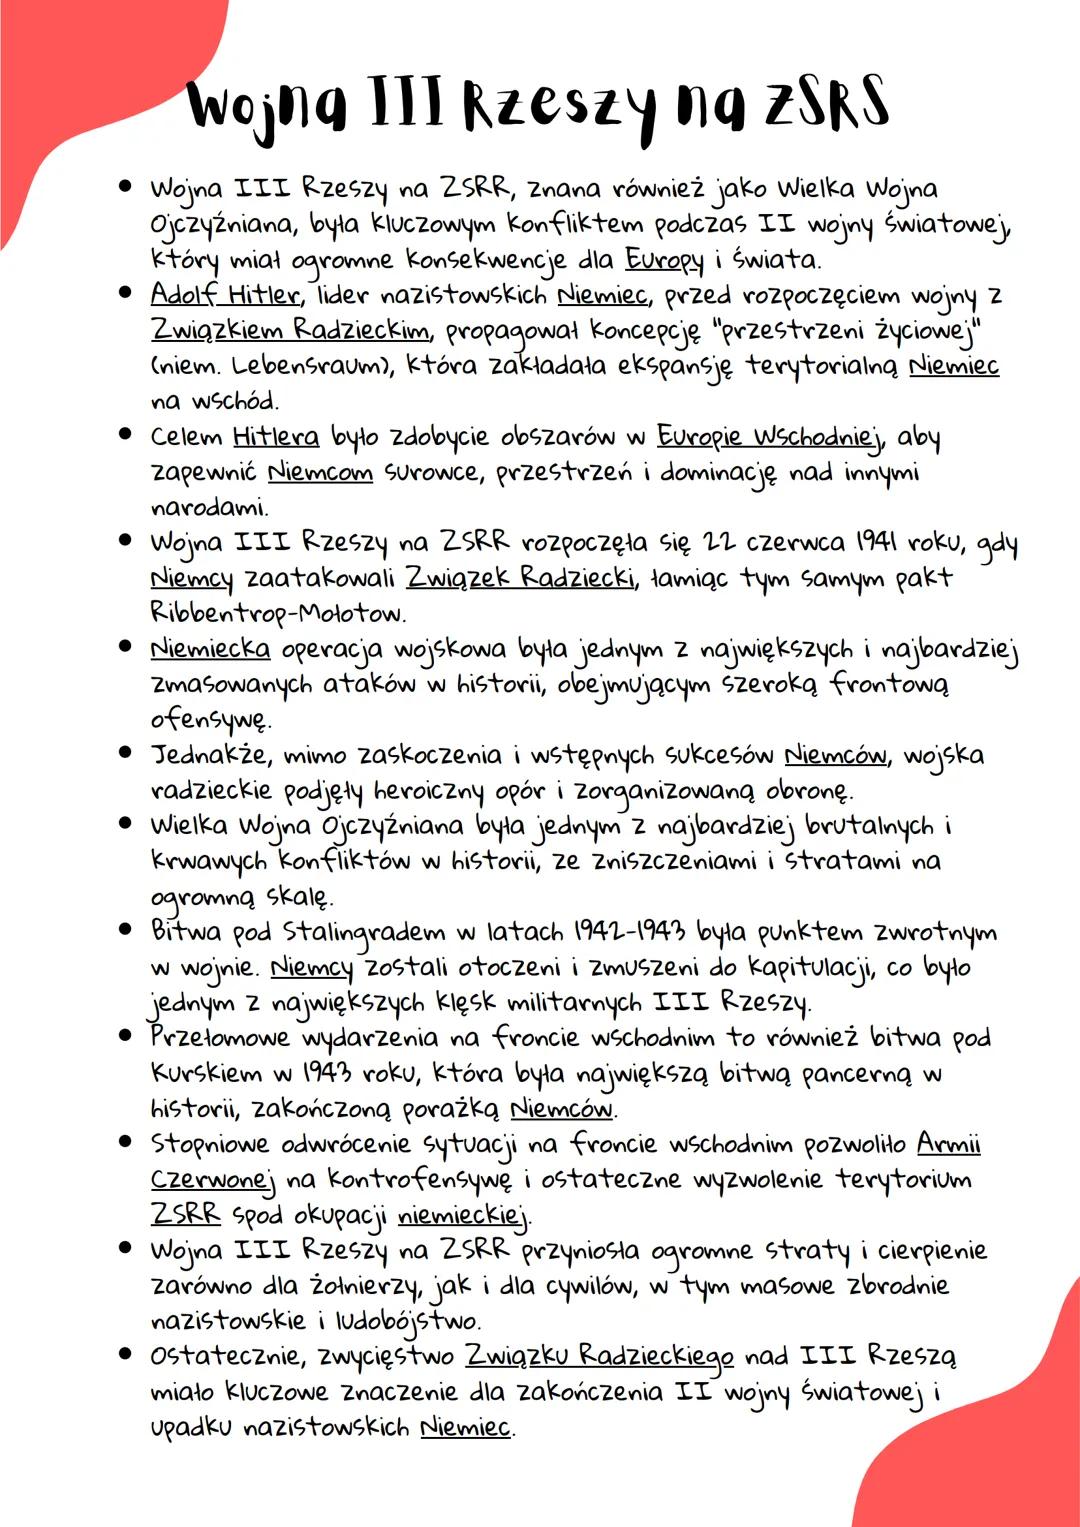 Wojna III Rzeszy na ZSRS
• Wojna III Rzeszy na ZSRR, znana również jako Wielka Wojna
Ojczyźniana, była kluczowym konfliktem podczas II wojny światowej,
który miał ogromne konsekwencje dla Europy i świata.
• Adolf Hitler, lider nazistowskich Niemiec, przed rozpoczęciem wojny z
Związkiem Radzieckim, propagował koncepcję "przestrzeni życiowej"
(niem. Lebensraum), która zakładała ekspansję terytorialną Niemiec
na wschód.
• Celem Hitlera było zdobycie obszarów w Europie Wschodniej, aby
zapewnić Niemcom surowce, przestrzeń i dominację nad innymi
narodami.
• Wojna III Rzeszy na ZSRR rozpoczęła się 22 czerwca 1941 roku, gdy
Niemcy zaatakowali Związek Radziecki, łamiąc tym samym pakt
Ribbentrop-Mołotow.
• Niemiecka operacja wojskowa była jednym z największych i najbardziej
zmasowanych ataków w historii, obejmującym szeroką frontową
ofensywę.
• Jednakże, mimo zaskoczenia i wstępnych sukcesów Niemców, wojska
radzieckie podjęły heroiczny opór i zorganizowaną obronę.
• Wielka Wojna Ojczyźniana była jednym z najbardziej brutalnych i
krwawych konfliktów w historii, ze zniszczeniami i stratami na
ogromną skalę.
• Bitwa pod Stalingradem w latach 1942-1943 była punktem zwrotnym
w wojnie. Niemcy zostali otoczeni i zmuszeni do kapitulacji, co było
jednym z największych klęsk militarnych III Rzeszy.
• Przełomowe wydarzenia na froncie wschodnim to również bitwa pod
Kurskiem w 1943 roku, która była największą bitwą pancerną w
historii, zakończoną porażką Niemców.
• Stopniowe odwrócenie sytuacji na froncie wschodnim pozwoliło Armii
Czerwonej na kontrofensywę i ostateczne wyzwolenie terytorium
ZSRR spod okupacji niemieckiej.
• Wojna III Rzeszy na ZSRR przyniosła ogromne straty i cierpienie
zarówno dla żołnierzy, jak i dla cywilów, w tym masowe zbrodnie
nazistowskie i ludobójstwo.
• Ostatecznie, zwycięstwo Związku Radzieckiego nad III Rzeszą
miało kluczowe znaczenie dla zakończenia II wojny światowej i
upadku nazistowskich Niemiec.